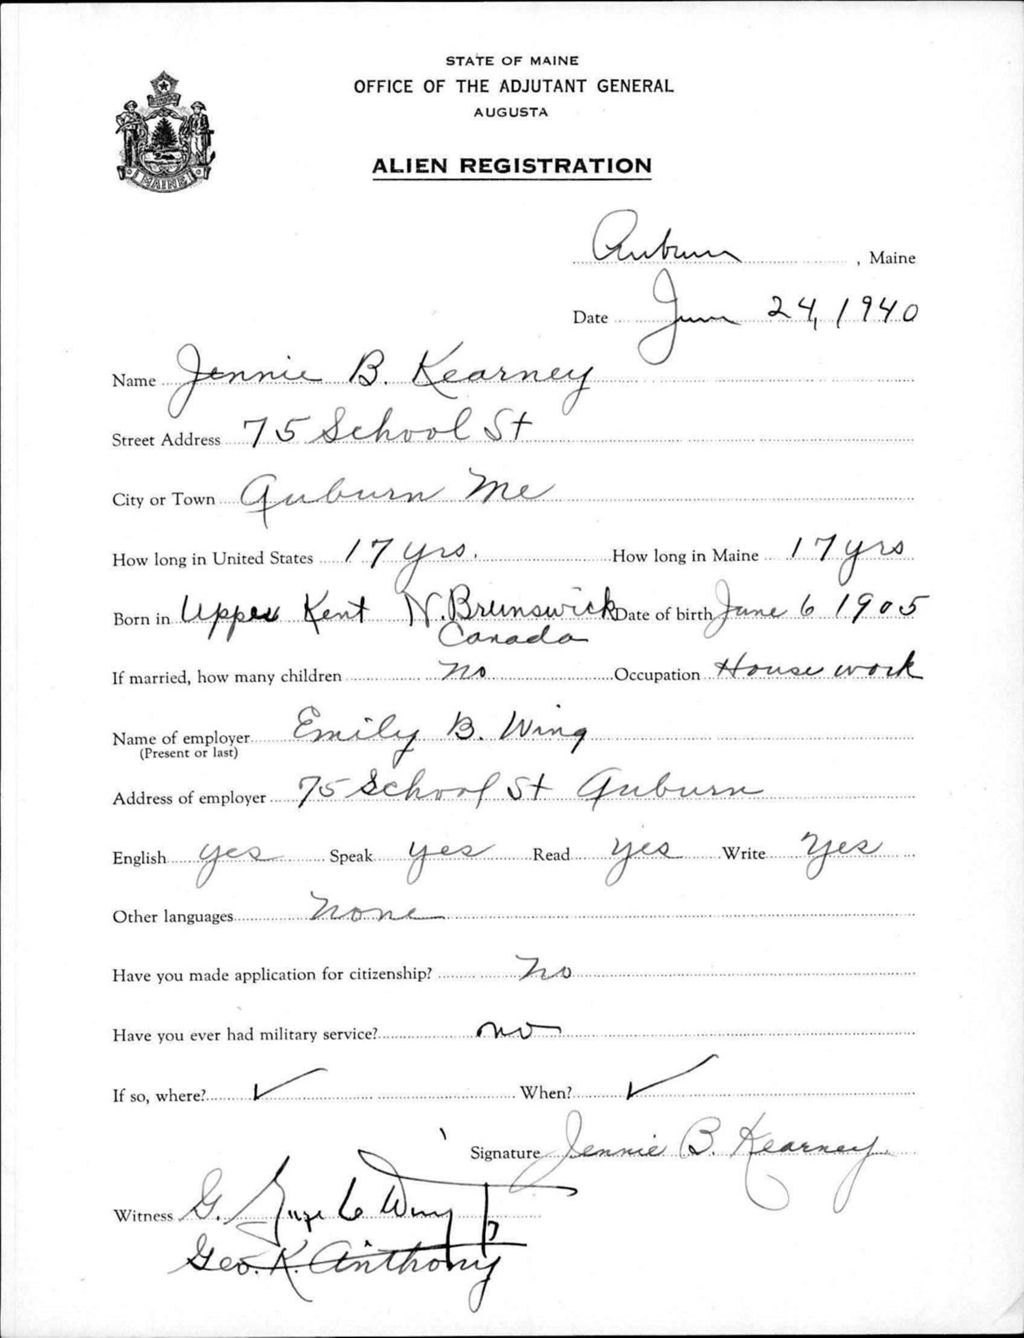 STATE OF MAINE
OFFICE OF THE ADJUTANT GENERAL
AUGUSTA
ALIEN REGISTRATION
MAINE
Auburn, Maine
Date June 24, 1940
Name Jennie B. Kearney
Street Address 75 School St
City or Town Auburn Me
How long in United States 17 yrs. How long in Maine 17 yrs
Born in Upper Kent N. Brunswick Date of birth June 6 1905
Canada
If married, how many children no Occupation House work
Name of employer Emily B. Wing
(Present or last)
Address of employer 75 School St Auburn
English yes Speak yes Read yes Write yes
Other languages none
Have you made application for citizenship? no
Have you ever had military service? no
If so, where? ✓ When? ✓
Signature Jennie B. Kearney
Witness G. Wing
Geo. K. Anthony